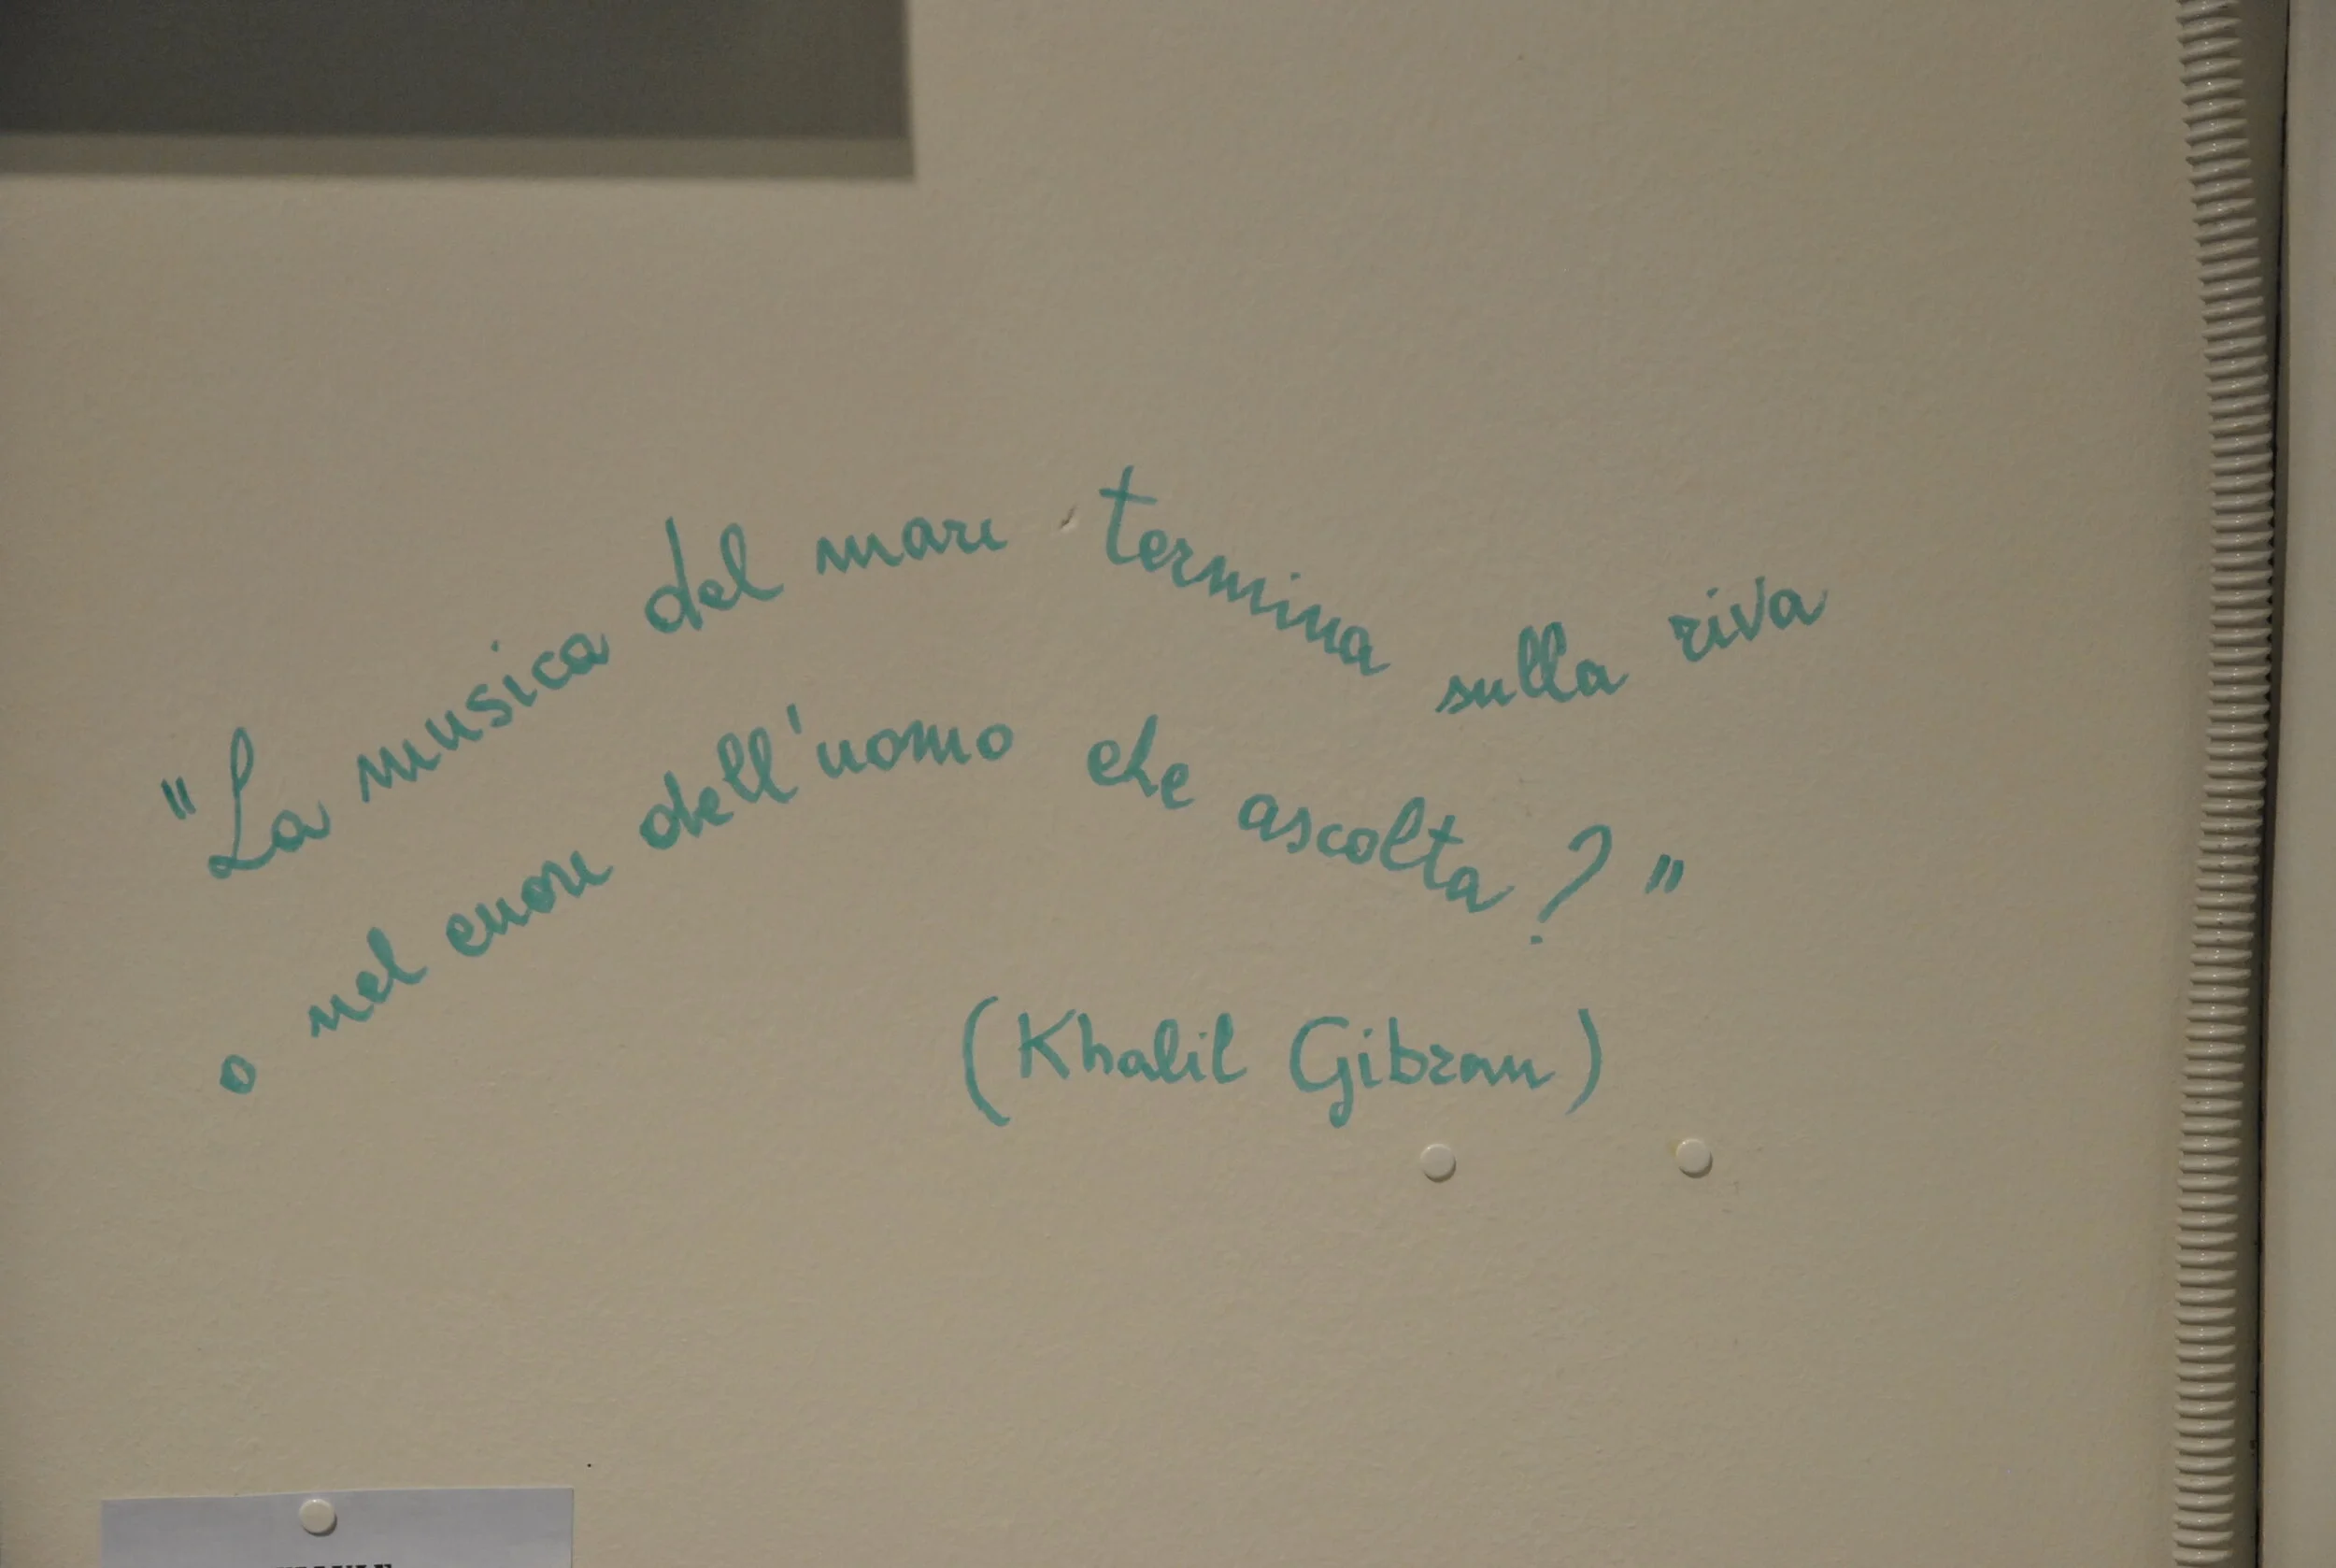 "La musica del mare termina sulla riva
o nel cuore dell'uomo che ascolta?"
(Khalil Gibran)